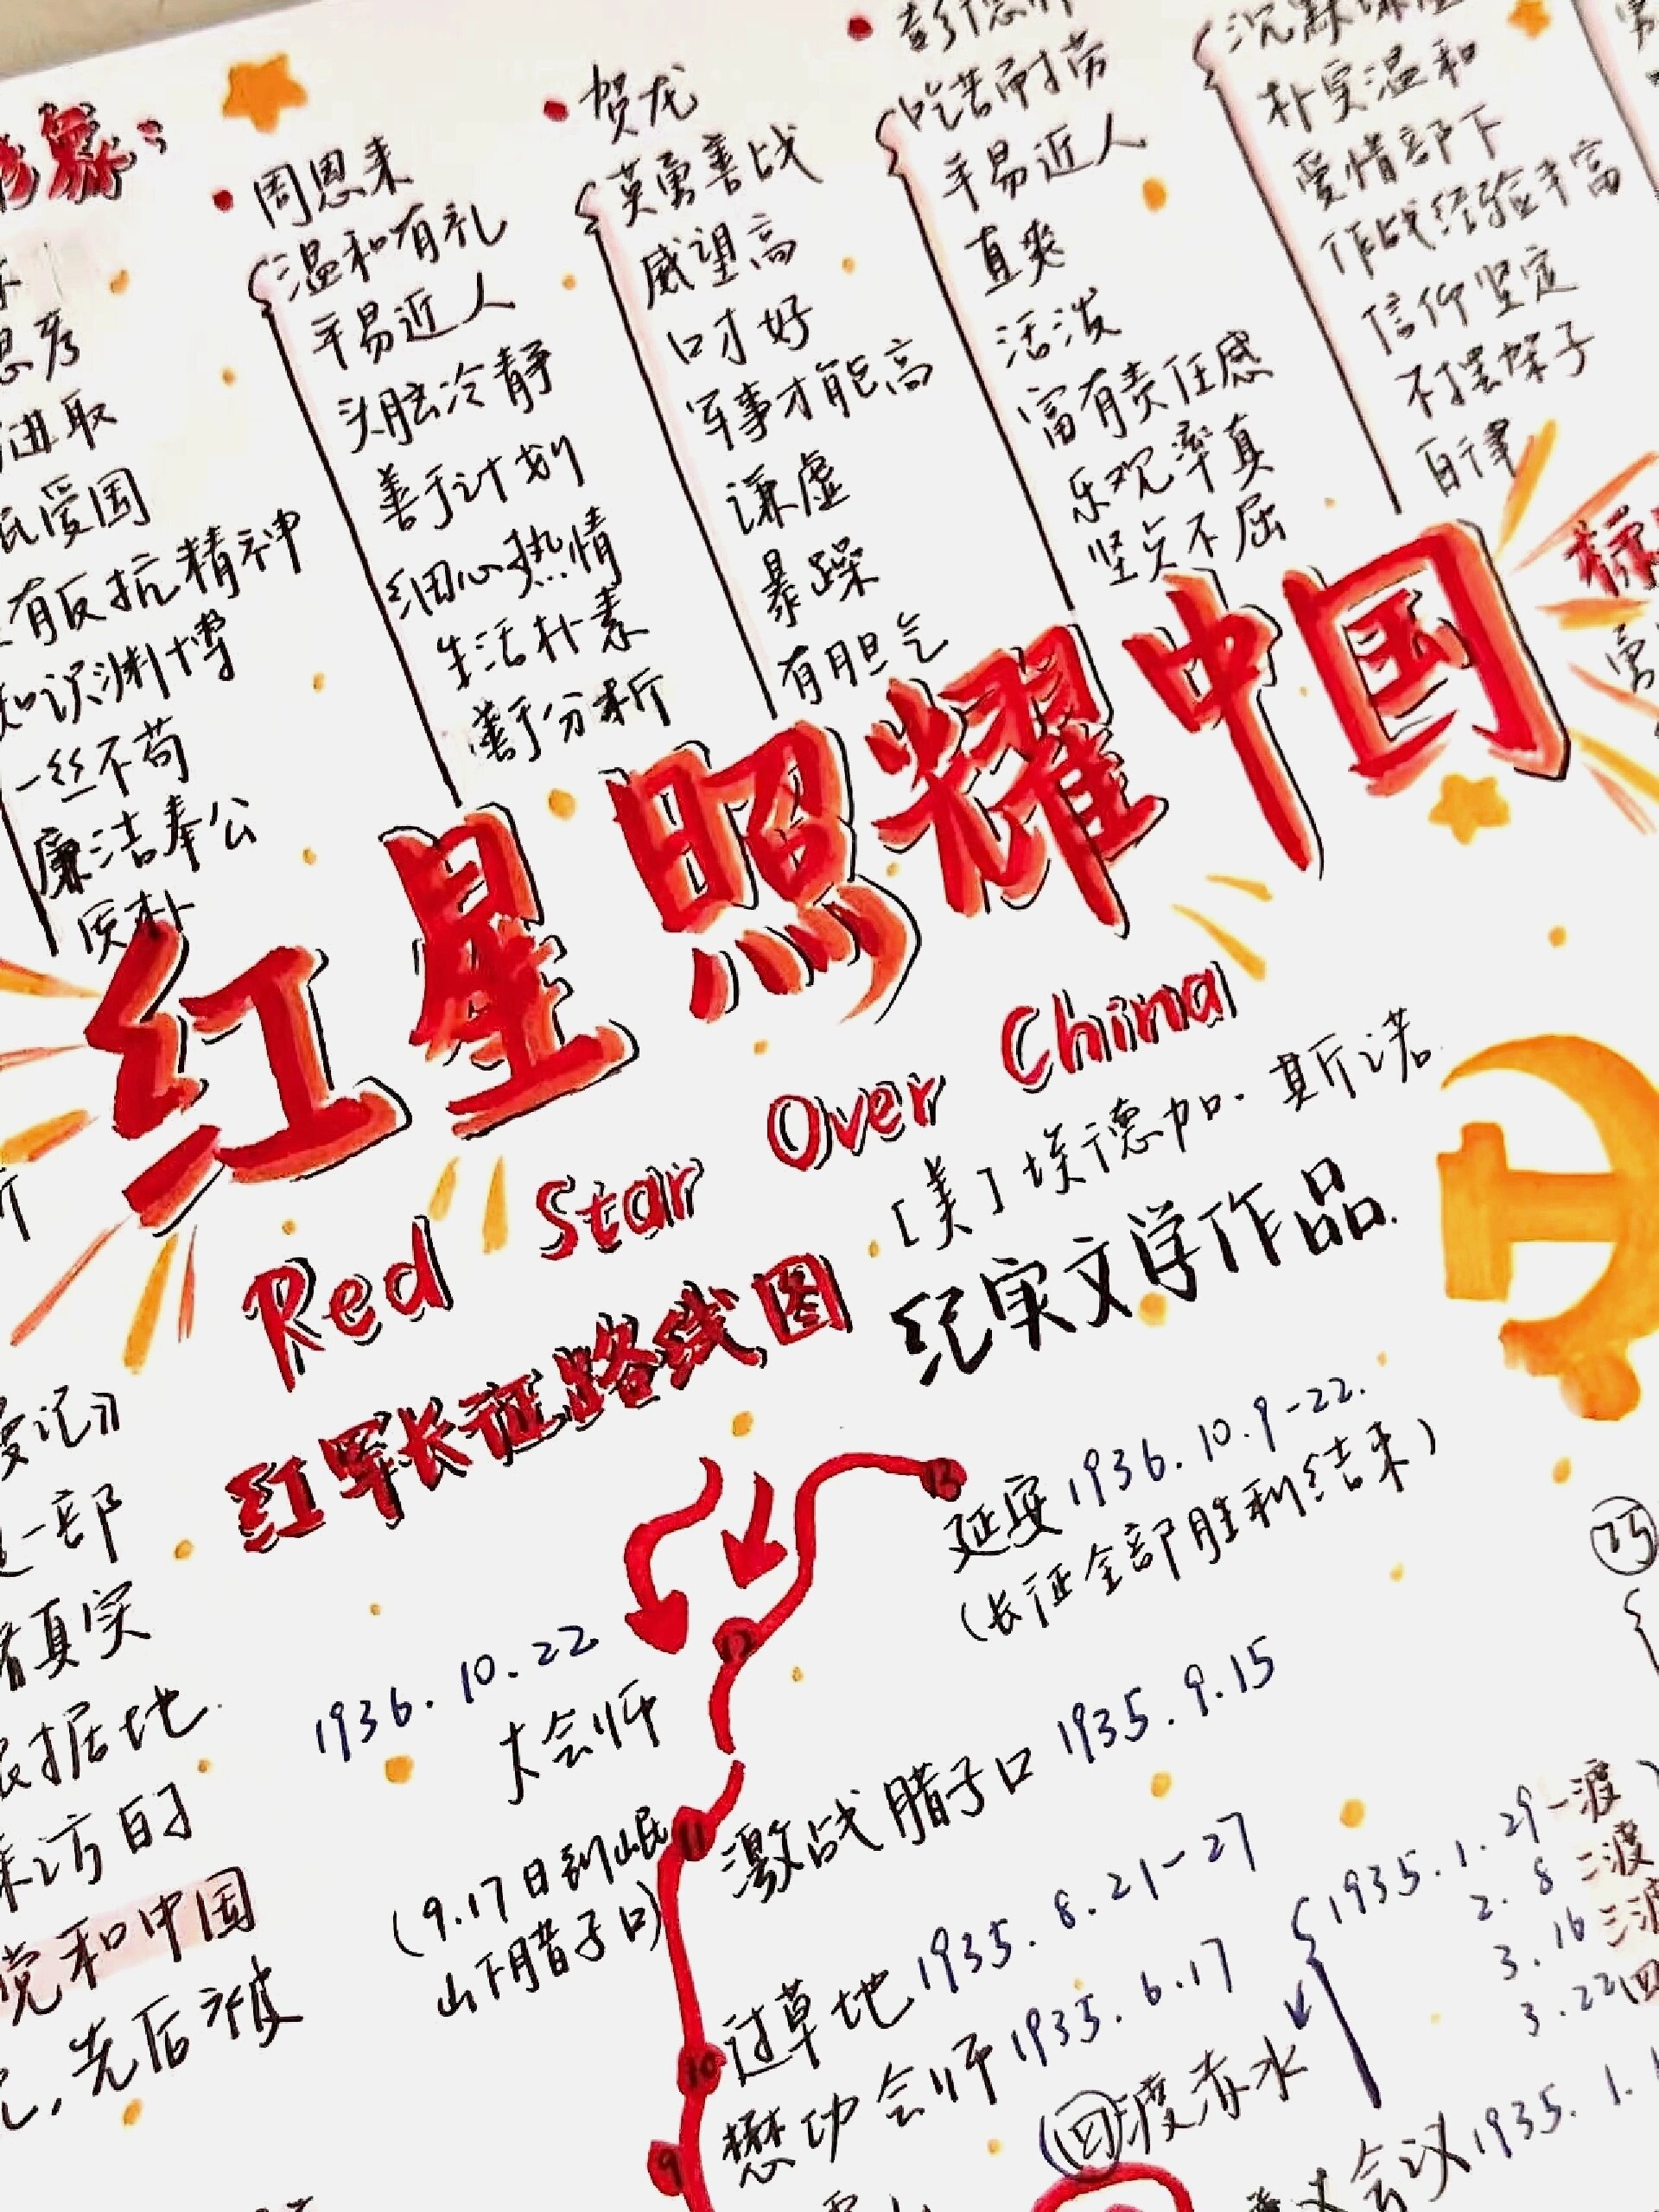 思考
进取
爱国
有反抗精神
知识渊博
一丝不苟
廉洁奉公
质朴
周恩来
温和有礼
平易近人
头脑冷静
善于计划
细心热情
生活朴素
善于分析
贺龙
英勇善战
威望高
口才好
军事才能高
谦虚
暴躁
有胆气
彭德怀
吃苦耐劳
平易近人
直爽
活泼
富有责任感
乐观率真
坚贞不屈
朴实温和
爱惜部下
作战经验丰富
信仰坚定
不摆架子
自律
红星照耀中国
Red Star Over China
[美]埃德加·斯诺
纪实文学作品
红军长征路线图
漫记》
一部
真实
根据地
采访的
党和中国
先后被
13
延安1936.10.9-22.
(长征全部胜利结束)
12
1936.10.22
大会师
11
激战腊子口 1935.9.15
(9.17日到岷
山下腊子口)
10
过草地1935.8.21-27
9
懋功会师1935.6.17
四渡赤水
1935.1.29一渡
2.8二渡
3.16三渡
3.22四
会议1935.1.1